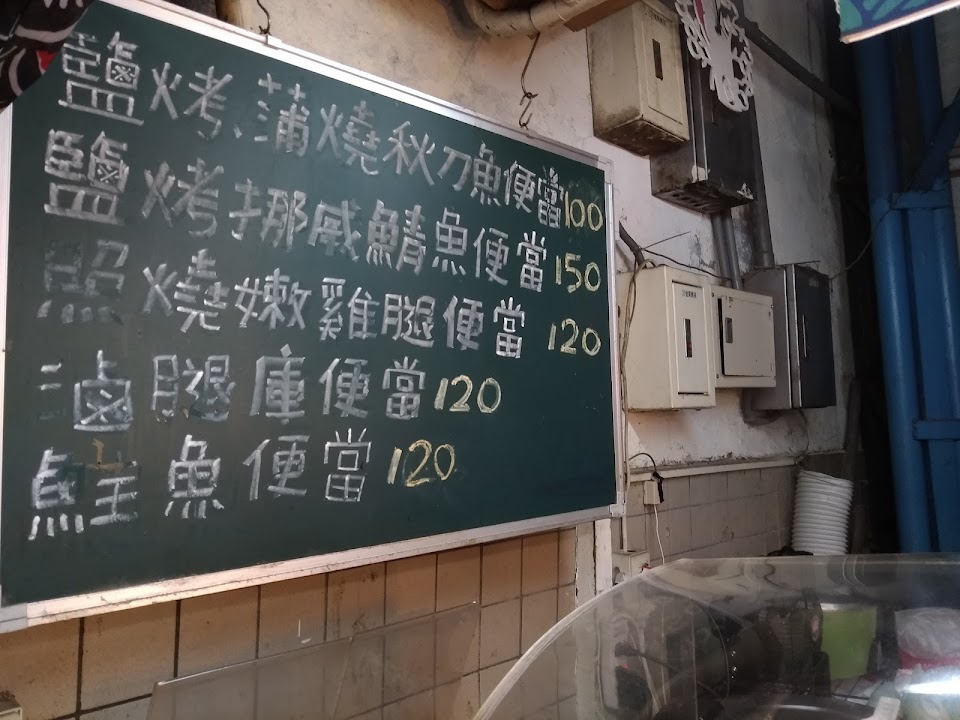 鹽烤、蒲燒秋刀魚便當100
鹽烤挪威鯖魚便當150
照燒嫩雞腿便當 120
滷腿庫便當120
鮭魚便當 120